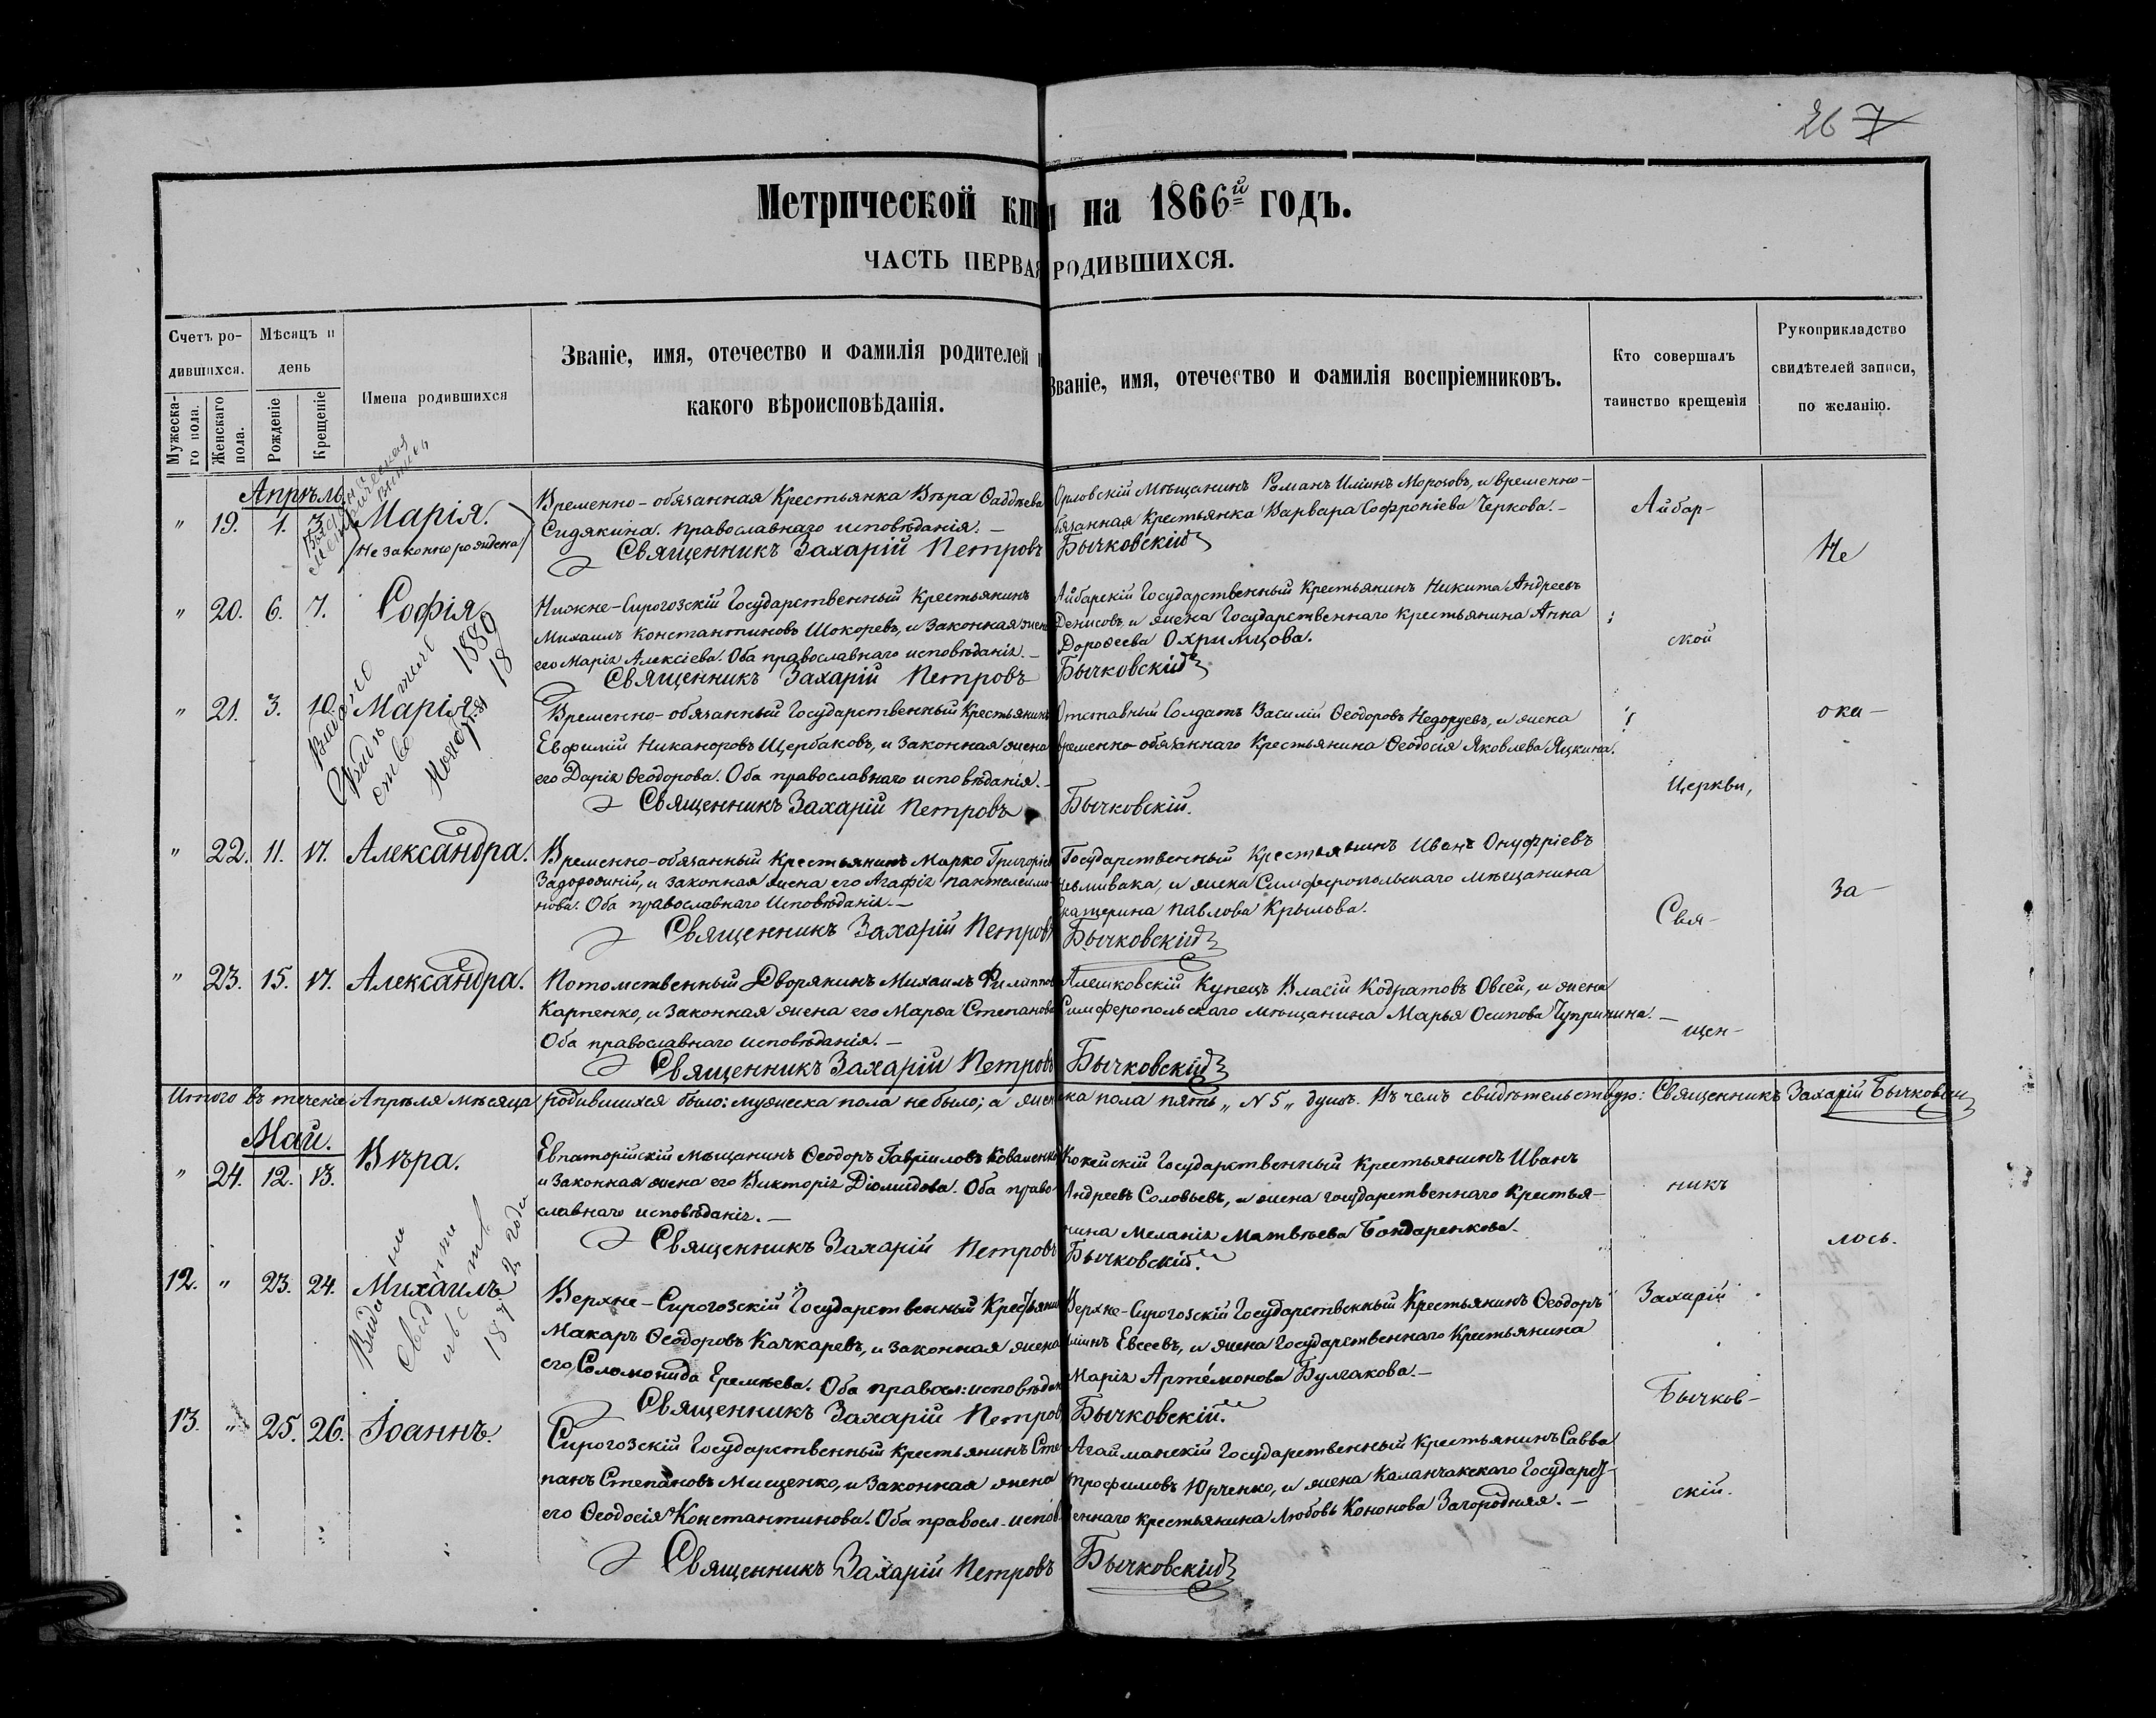 267
Метрической книги на 1866й годъ.
ЧАСТЬ ПЕРВАЯ РОДИВШИХСЯ.
Счетъ ро-
дившихся.
Мужеска-
го пола.
Женскаго
пола.
Мѣсяцъ и
день
Рожденіе
Крещеніе
Имена родившихся
Званіе, имя, отечество и фамилія родителей и
какого вѣроисповѣданія.
Званіе, имя, отечество и фамилія воспріемниковъ.
Кто совершалъ
таинство крещенія
Рукоприкладство
свидѣтелей записи,
по желанію.
Апрѣль
" 19. 1. 3. Марія.
Незаконнорождена
Временно-обязанная Крестьянка Вѣра Фаддѣева
Сидякина. Православнаго исповѣданія.—
Священникъ Захарій Петровъ Бычковскій
Орловскій Мѣщанинъ Романъ Илiинъ Морозовъ, и временно-
обязанная Крестьянка Варвара Софроніева Черкова.—
Айбар-
Не
" 20. 6. 7. Софія.
Нижне-Сирогозскій Государственный Крестьянинъ
Михаилъ Константиновъ Шокоревъ, и Законная жена
его Марія Алексіева. Оба православнаго исповѣданія.—
Священникъ Захарій Петровъ Бычковскій
Айбарскій Государственный Крестьянинъ Никита Андреевъ
Денисовъ, и жена Государственнаго крестьянина Анна
Дорофеева Охримцова.
ской
" 21. 3. 10. Марія.
Выдано
1889
Ноября 18
Временно-обязанный Государственный Крестьянинъ
Евфимій Никаноровъ Щербаковъ, и Законная жена
его Дарія Ѳеодорова. Оба православнаго исповѣданія.—
Священникъ Захарій Петровъ Бычковскій.
Отставный Солдатъ Василій Ѳеодоровъ Недоруевъ, и жена
временно-обязаннаго Крестьянина Ѳеодосія Яковлева Яцкина.
Церкви,
ока-
" 22. 11. 17. Александра.
Временно-обязанный Крестьянинъ Марко Григоріевъ
Задорожній, и законная жена его Агафія Пантелеимо-
нова. Оба православнаго Исповѣданія.—
Священникъ Захарій Петровъ Бычковскій
Государственный Крестьянинъ Иванъ Онуфріевъ
и жена Симферопольскаго мѣщанина
Екатерина Павлова Крылова.
Свя-
за-
" 23. 15. 17. Александра.
Потомственный Дворянинъ Михаилъ Филиппов
Карпенко, и Законная жена его Марфа Степанова
Оба православнаго исповѣданія.—
Священникъ Захарій Петровъ Бычковскій
Алешковскій Купецъ Власій Кодратовъ Овсей, и жена
Симферопольскаго мѣщанина Марья Осипова Чупринина.—
щен-
Итого въ теченіе Апрѣля мѣсяца родившихся было: мужеска пола не было; а женска пола пять „N 5„ душъ. Въ чемъ свидѣтельствую: Священникъ Захарій Бычковскій
Май.
" 24. 12. 13. Вѣра.
Евпаторійскій Мѣщанинъ Ѳеодоръ Гавриловъ Коваленко
и Законная жена его Викторія Діомидова. Оба право-
славнаго исповѣданія.—
Священникъ Захарій Петровъ Бычковскій.
Государственный Крестьянинъ Иванъ
Андреевъ Соловьевъ, и жена государственнаго Крестья-
нина Меланія Матвѣева Бондаренкова.
никъ
лось.
12. " 23. 24. Михаилъ
1872 года
Верхне-Сирогозскій Государственный Крестьянинъ
Макаръ Ѳеодоровъ Качкаревъ, и законная жена
его Соломонида Еремѣева. Оба правосл: исповѣдан
Священникъ Захарій Петров Бычковскій.
Верхне-Сирогозскій Государственный Крестьянинъ Ѳеодоръ
Илiинъ Евсеевъ, и жена государственнаго Крестьянина
Марія Артемонова Булгакова.—
Захарій
Бычков-
13. " 25. 26. Іоаннъ.
Сирогозскій Государственный крестьянинъ Сте-
панъ Степановъ Мищенко, и Законная жена
его Ѳеодосія Константинова. Оба правосл. испов-
Священникъ Захарій Петровъ Бычковскій
Агайманскій Государственный Крестьянинъ Савва
Трофимовъ Юрченко, и жена Каланчакскаго Государст-
веннаго крестьянина Любовь Кононова Загородняя.—
скій.